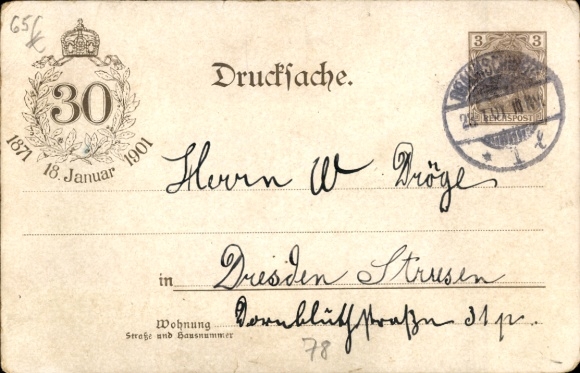 65
30
1871 18. Januar 1901
Drucksache.
3 3
REICHSPOST
Herrn W Dröge
in Dresden Striesen
Wohnung Dornblüthstraße 31 p.
Straße und Hausnummer
78